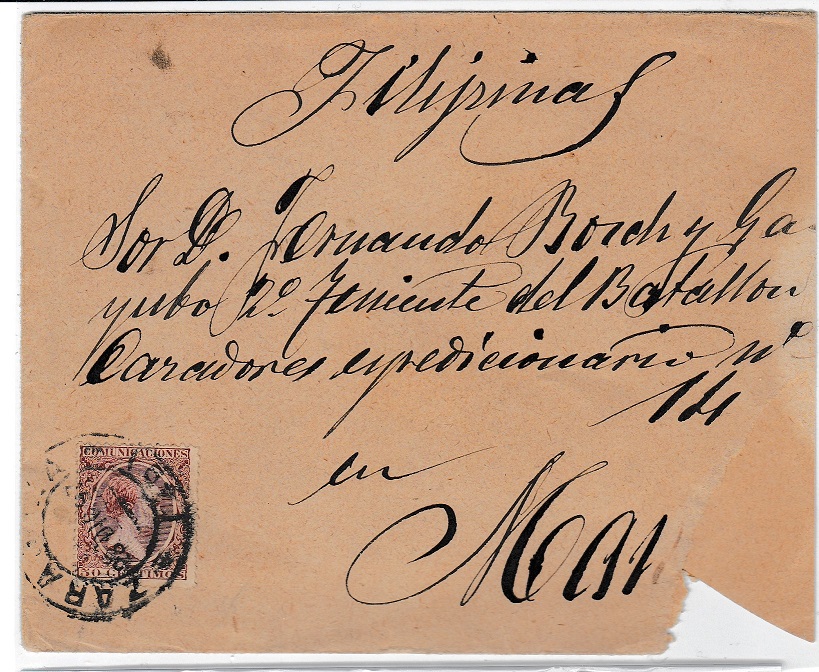 Filipinas
Sor D. Fernando Bosch y Ga-
yubo 2º Teniente del Batallon
Cazadores espedicionario nº
14
en
Man
COMUNICACIONES
50 CENTIMOS
ZARA